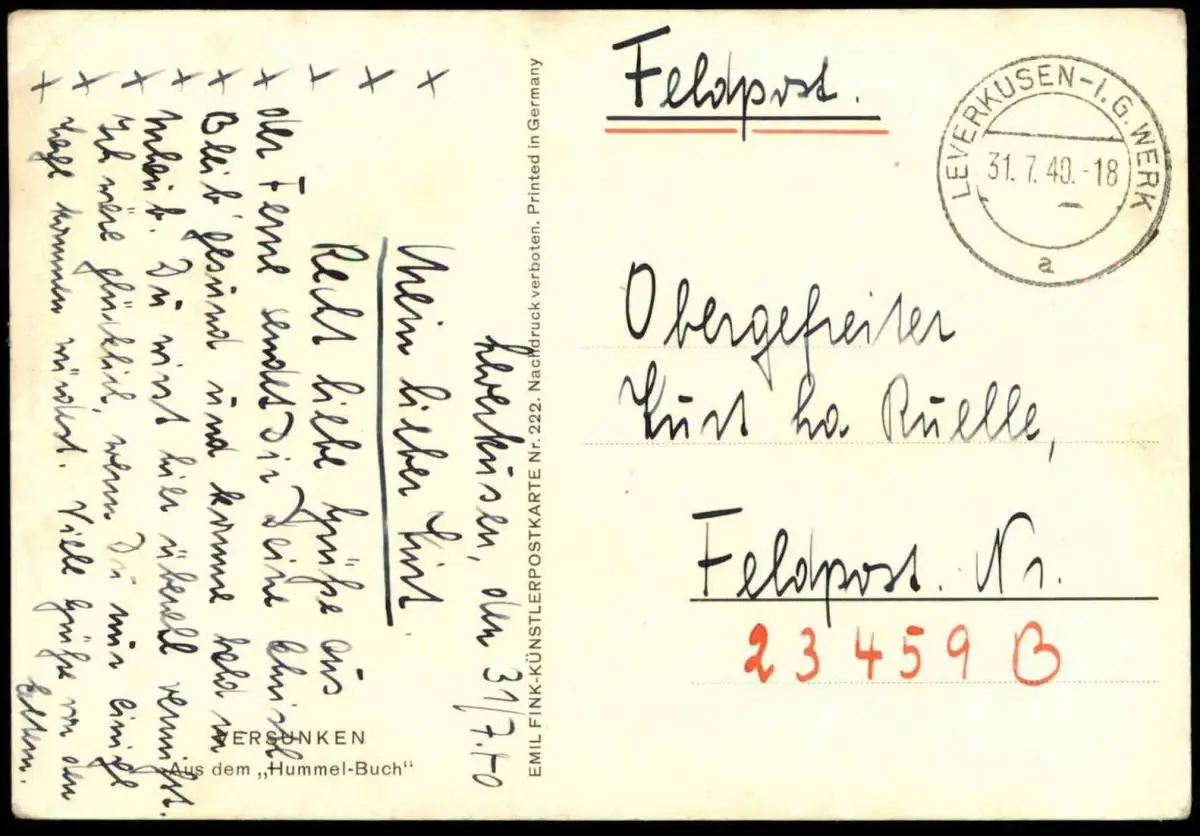 Leverkusen, den 31/7.40
Mein lieber Kurt.
Recht liebe Grüße aus
der Ferne sendet Dir Deine Christel
Bleib' gesund und komme bald in
Urlaub. Du wirst hier überall vermißt.
Ich wäre glücklich, wenn Du nur einige
Tage kommen würdest. Viele Grüße von den
Eltern.
VERSUNKEN
Aus dem „Hummel-Buch“
EMIL FINK-KÜNSTLERPOSTKARTE Nr. 222. Nachdruck verboten. Printed in Germany
Feldpost.
LEVERKUSEN-I.G.WERK
31.7.40.-18
a
Obergefreiter
Kurt La Ruelle,
Feldpost. Nr.
23459 B